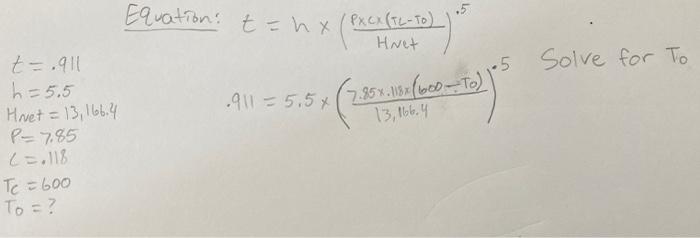 Equation: t = h x (PxCx(Tc-To) / HNet)^.5
t = .911
h = 5.5
HNet = 13,166.4
P = 7.85
C = .118
Tc = 600
To = ?
.911 = 5.5 x (7.85x.118x(600-To) / 13,166.4)^.5
Solve for To